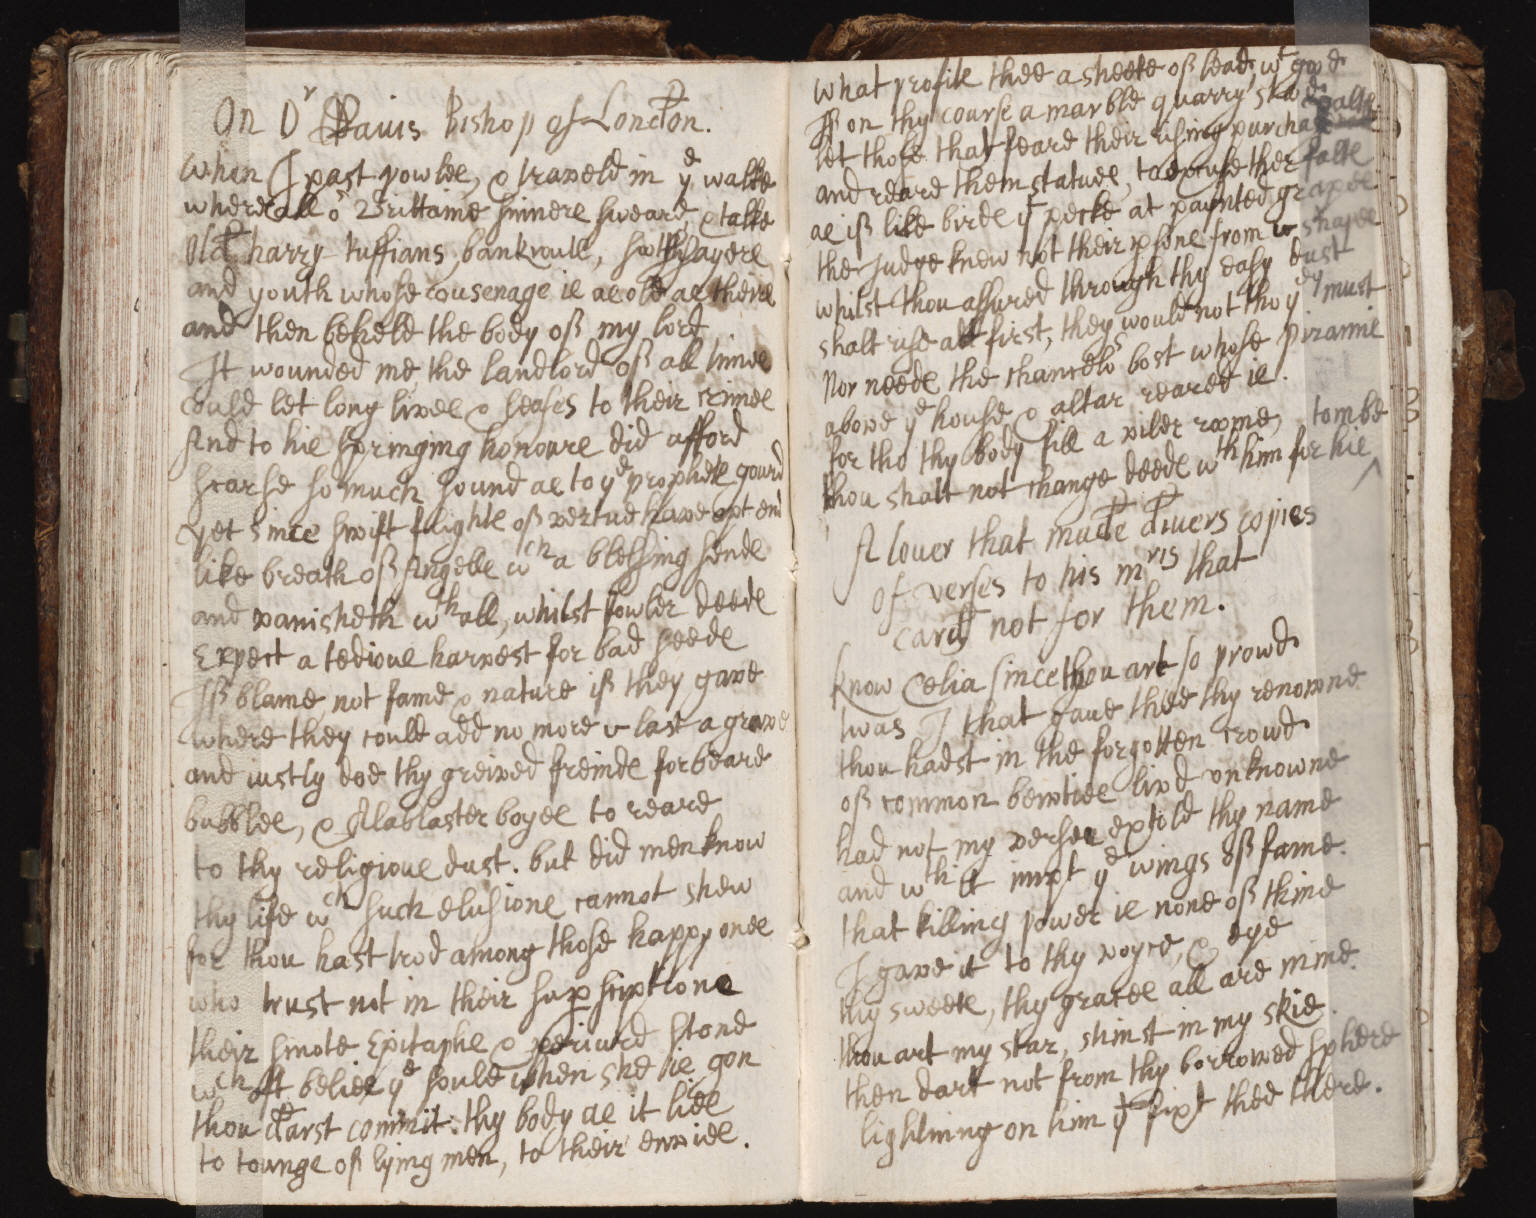 On Dr Rauis Bishop of London.
When I past powles, & traveld in ye walke
where all or Brittaine sinners sweare, & talke
Old harry ruffians, bankrouts, soothsayers
and youth whose cousenage is as old as theirs
and then beheld the body of my lord
It wounded me, the landlord of all times
could let long lives & leases to their crimes
And to his springing honoure did afford
scarse so much sound as to ye prophets gourd
yet since swift flights of vertue have apt end
like breath of Angells wch a blessing sends
and vanisheth wth all, whilst fowler deeds
Expect a tedious harvest for bad seeds
Iß blame not fame & nature if they gave
where they could add no more ye last a grave
and iustly doe thy greived freinds forbeare
bubbles, & Alablaster boyes to reare
to thy religious dust. but did men know
thy life wch such elusions cannot shew
for thou hast trod among those happy ones
who trust not in their supscriptions
their smote Epitaphs & periurd stone
wch oft belies ye soule when she is gon
thou darst commit thy body as it lies
to tounge of lying men, to their envies.
what profits thee a sheete of lead, wt good
If on thy course a marble quarry stood
let those that feare their rising purchase valts
and reare them statues, to excuse ther falts
as if like birds yt pecke at paynted grapes
the judge knew not their psons from ye shapes
whilst thou assured through thy easy dust
shalt rise att first, they would not tho yey must
Nor needs the chancelor bost whose piramis
above ye house & altar reared is.
for tho thy body fill a viler roome, tombe
thou shalt not change deeds wth him for his ^
A louer that made diuers copies
of verses to his mris that
card not for them.
know Celia since thou art so prowd
twas I that gaue thee thy renowne
thou hadst in the forgotten crowd
of common bewties livd unknowne
had not my verses extold thy name
and wth it impt ye wings of fame.
that killing power is none of thine
I gave it to thy voyce, & eye
thy sweets, thy graces all are mine.
thou art my star, shinst in my skie.
then dart not from thy borrowed sphere
lightning on him yt fixt thee there.